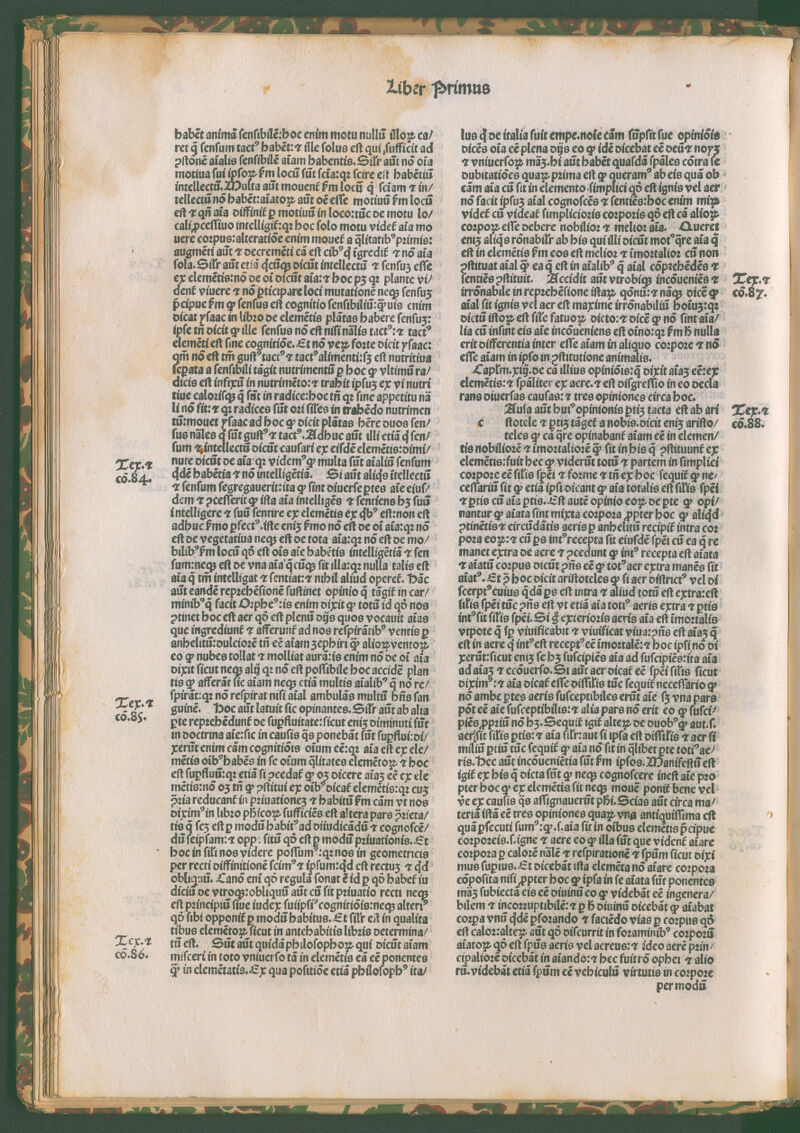 Liber Primus
habēt animā sensibilē: hoc enim motu nullū illoꝝ ca/
ret qͥ sensum tactꝰ habēt: ⁊ ille solus est qui sufficit ad
ꝯstōnē aīalis sensibilē aīam habentis. Silr aūt nō oīa
motiua sui ipsoꝝ ẜm locū sūt scīa: qꝛ scire est habētiū
intellectū. Multa aūt mouent ẜm locū q̄ scīam ⁊ in/
tellectū nō habēt: aīatoꝝ aūt oē esse motiuū ẜm locū
est ⁊ qn̄ aīa diffinit̄ ꝑ motiuū in loco: tūc de motu lo/
cali ꝓcessiuo intelligit̄: qꝛ hoc solo motu videt̄ aīa mo
uere corpus: alteratiōe enim mouet̄ a q̄litatibꝰ primis:
augmēti aūt ⁊ decremēti cā est cibꝰ qͥ īgredit̄ ⁊ nō aīa
sola. Silr aūt etiā qͥcūqꝫ dicūt intellectū ⁊ sensuꝫ esse
ex elemētis: nō de oī dicūt aīa: ⁊ hoc pꝫ qꝛ plante vi/
dent̄ viuere ⁊ nō ꝑticipare loci mutationē neqꝫ sensuꝫ
p̄cipue ẜm ꝙ sensus est cognitio sensibiliū: q̄uis enim
dicat ysaac in libro de elemētis plātas habere sensuꝫ:
ipse tn̄ dicit ꝙ ille sensus nō est nisi nālis tactꝰ: ⁊ tactꝰ
elemēti est sine cognitiōe. Et nō veꝝ forte dicit ysaac:
qm̄ nō est tm̄ gustꝰ tactꝰ ⁊ tactꝰ alimenti: sꝫ est nutritiua
sepata a sensibili tāgit nutrimentū ꝑ hoc ꝙ vltimū ra/
dicis est infixū in nutrimēto: ⁊ trahit ipsuꝫ ex vi nutri
tiue calorisqꝫ qͥ sūt in radice: hoc tn̄ qꝛ sine appetitu nā
li nō fit: ⁊ qꝛ radices sūt ori siles in trahēdo nutrimen
tū: mouet ysaac ad hoc ꝙ dicit plātas hēre duos sen/
sus nāles qͥ sūt gustꝰ ⁊ tactꝰ. Adhuc aūt illi etiā qͥ sen/
sum ⁊ intellectū dicūt causari ex eisdē elemētis: dimi/
nute dicūt de aīa: qꝛ videmꝰ ꝙ multa sūt aīaliū sensum
qͥdē habētia ⁊ nō intelligētiā. Si aūt aliqͥs ītellectū
⁊ sensum segregauerit: ita ꝙ sint diuerse ptes aīe eius/
dem ⁊ ꝯcesserit ꝙ ista aīa intelligēs ⁊ sentiens hꝫ suū
intelligere ⁊ suū sentire ex elemētis ex qͥbꝰ est: non est
adhuc ẜmo ꝑfectꝰ. iste eniꝫ ẜmo nō est de oī aīa: qꝛ nō
est de vegetatiua neqꝫ est de tota aīa: qꝛ nō est de mo/
bilibꝰ ẜm locū qd̄ est oīs aīe habētis intelligētiā ⁊ sen
sum: neqꝫ est de vna aīa qͥcūqꝫ sit illa: qꝛ nulla talis est
aīa q̄ tm̄ intelligat ⁊ sentiat: ⁊ nihil aliud operet̄. Hāc
aūt eandē reprehēsionē sustinet opinio q̄ tāgit̄ in car/
minibꝰ q̄ facit Orpheꝰ: is enim dixit ꝙ totū id qd̄ nos
ꝯtinet hoc est aer qd̄ est plenū dijs quos vocauit aīas
que ingrediunt̄ ⁊ afferunt̄ ad nos respirātibꝰ ventis ꝑ
anhelitū: dulciorē tn̄ eē aīam zephiri qͣꝫ alioꝝ ventoꝝ
eo ꝙ nubes tollat ⁊ molliat aurā: is enim nō de oī aīa
dixit sicut neqꝫ alij: qꝛ nō est possibile hoc accidē plan
tis ꝙ afferāt sic aīam neqꝫ etiā multis aīalibꝰ q̄ nō re/
spirāt: qꝛ nō respirat nisi aīal ambulās multū hn̄s san
guinē. Hoc aūt latuit sic opinantes. Silr aūt ab alia
pte reprehēdunt̄ de supfluitate: sicut eniꝫ diminuti sūt
in doctrina aīe: sic in causis qͣs ponebāt sūt supflui: di/
xerūt enim cām cognitiōis oīum eē: qꝛ aīa est ex ele/
mētis oībꝰ habēs in se oīum qͣlitates elemētoꝝ ⁊ hoc
est supfluū: qꝛ etiā si ꝯcedat̄ ꝙ oꝫ dicere aīaꝫ eē ex ele
mētis: nō oꝫ tn̄ ꝙ ꝯstitui ex oībꝰ dicat̄ elemētis: qꝛ cuꝫ
ꝯria reducant̄ in priuationeꝫ ⁊ habitū ẜm cām vt nos
diximꝰ in libro phicoꝝ sufficiēs est altera pars ꝯrieta/
tis qͥ scꝫ est ꝑ modū habitꝰ ad diiudicādū ⁊ cognoscē/
dū seipsam: ⁊ oppōsitū qd̄ est ꝑ modū priuationis. Et
hoc in sili nos videre possumꝰ: qꝛ nos in geometricis
per recti diffinitionē scimꝰ ⁊ ipsum: qd̄ est rectuꝫ ⁊ qd̄
obliqͥuū. Canō enī qd̄ regulā sonat ē id ꝑ qd̄ habet̄ iu
diciū de vtroqꝫ: obliquū aūt cū sit priuatio recti neqꝫ
est principiū siue iudex suiipsiꝰ cognitiōis: neqꝫ alteriꝰ
qd̄ sibi opponit̄ ꝑ modū habitus. Et silr ē ī in qualita
tibus elemētoꝝ sicut in antehabitis libris determina/
tū est. Sūt aūt quidā philosophoꝝ qui dicūt aīam
misceri in toto vniuerso tā in elemētis eā eē ponentes
qͣꝫ in elemētatis. Ex qua positiōe etiā philosophꝰ ita/
Tex.⁊
cō.84.
Tex.⁊
cō.85.
Tex.⁊
cō.86.
lus qͥ de italia fuit empe. noīe cām sūpsit sue opiniōis
dicēs oīa eē plena dijs eo ꝙ idē dicebat eē deū ⁊ noyꝫ
⁊ vniuersoꝝ māꝫ. hi aūt habēt quasdā spāles cōtra se
dubitatiōes quaꝝ prima est ꝙ queramꝰ ab eis quā ob
cām aīa cū sit in elemento simplici qd̄ est ignis vel aer
nō facit ipsuꝫ aīal cognoscēs ⁊ sentiēs: hoc enim miꝝ
videt̄ cū videat̄ simplicioris corporis qd̄ est cā alioꝝ
corpoꝝ esse debere nobilior ⁊ melior aīa. Queret
eniꝫ aliqͥs rōnabilr ab his qui illi dicūt motꝰ qͣre aīa q̄
est in elemētis ẜm eos est melior ⁊ imortalior cū non
ꝯstituat aīal qͣꝫ ea q̄ est in aīalibꝰ q̄ aīal cōprehēdēs ⁊
sentiēs ꝯstituit. Accidit aūt vtrobiqꝫ incōueniēs ⁊
irrōnabile in reprehēsione istaꝝ qōnū: ⁊ nāqꝫ dicē ꝙ
aīal sit ignis vel aer est maxime irrōnabiliū hoīuꝫ: qꝛ
dictū istoꝝ est sile fatuoꝝ dicto: ⁊ dicē ꝙ nō sint aīa/
lia cū insint eis aīe incōueniens est oīno: qꝛ ẜm ħ nulla
erit differentia inter esse aīam in aliquo corpore ⁊ nō
esse aīam in ipso in ꝯstitutione animalis.
Caplm. xiij. de cā illius opiniōis: q̄ dixit aīaꝫ eē: ex
elemētis: ⁊ spāliter ex aere. ⁊ est disgressio in eo decla
rans diuersas causas: ⁊ tres opiniones circa hoc.
c Ausa aūt huiꝰ opinionis ptiꝫ tacta est ab ari
stotele ⁊ ptiꝫ tāget̄ a nobis. dicit eniꝫ aristo/
teles ꝙ eā qͣre opinabant̄ aīam eē in elemen/
tis nobiliorē ⁊ imortaliorē qͣꝫ sit in his q̄ ꝯstituunt̄ ex
elemētis: fuit hec ꝙ viderūt totū ⁊ partem in simplici
corpore eē silis spēi ⁊ forme ⁊ tn̄ ex hoc sequit̄ ꝙ ne/
cessariū sit ꝙ etiā ipsi dicant ꝙ aīa totalis est silis spēi
⁊ ptis cū aīa ptis. Est autē opinio eoꝝ de pte ꝙ opi/
nantur ꝙ aīata sint mixta corpora ꝓpter hoc ꝙ aliqͥd
ꝯtinētis ⁊ circūdātis aeris ꝑ anhelitū recipit̄ intra cor
pora eoꝝ: ⁊ cū ps intꝰ recepta sit eiusdē spēi cū ea q̄ re
manet extra de aere ⁊ ꝯcedunt ꝙ intꝰ recepta est aīata
⁊ aīatū corpus dicūt ꝯn̄s eē ꝙ totꝰ aer extra manēs sit
aīatꝰ. Et ꝓ hoc dicit aristoteles ꝙ si aer districtꝰ vel di
scerptꝰ cuius quēdā ps est intra ⁊ aliud totū est extra: est
silis spēi tūc ꝯn̄s est vt etiā aīa totiꝰ aeris extra ⁊ ptis
intꝰ sit silis spēi. Si g̊ exterioris aeris aīa est imortalis
vtpote q̄ sp̄ viuificabit ⁊ viuificat viua: ꝯn̄s est aīaꝫ q̄
est in aere qͥ intꝰ est receptꝰ eē imortalē: ⁊ hoc ipsi nō di
xerūt: sicut eniꝫ se hꝫ suscipiēs aīa ad suscipiēs: ita aīa
ad aīaꝫ ⁊ ecōuerso. Si aūt aer dicat̄ eē spēi silis sicut
diximꝰ: ⁊ aīa dicat̄ esse dissilis tūc sequit̄ necessario ꝙ
nō ambe ptes aeris susceptibiles erūt aīe sꝫ vna pars
pōt eē aīe susceptibilis: ⁊ alia pars nō erit eo ꝙ susci/
piēs ꝓpriū nō hꝫ. Sequit̄ igit̄ alteꝝ de duobꝰ ꝙ aut. s.
aer sit silis ptis: ⁊ aīa silr: aut si ipsa est dissilis ⁊ aer si
miliū ptiū tūc sequit̄ ꝙ aīa nō sit in qͣlibet pte totiꝰ ae/
ris. Hec aūt incōuenientia sūt ẜm ipsos. Manifestū est
igit̄ ex his q̄ dicta sūt ꝙ neqꝫ cognoscere inest aīe pro
pter hoc ꝙ ex elemētis sit neqꝫ mouē ponit̄ bene vel
v̄e ex causis qͣs assignauerūt phi. Scias aūt circa ma/
teriā istā eē tres opiniones quaꝝ vna antiquissima est
quā ꝓsecuti sumꝰ: ꝙ. s. aīa sit in oībus elemētis p̄cipue
corporeis. s. igne ⁊ aere eo ꝙ illa sūt que vident̄ aīare
corpora ꝑ calorē nālē ⁊ respirationē ⁊ spūm sicut dixi
mus supius. Et dicebāt ista elemēta nō aīare corpora
cōposita nisi ꝓpter hoc ꝙ ipsa in se aīata sūt ponentes
māꝫ subiectā eis eē diuinū eo ꝙ videbāt eē ingenera/
bilem ⁊ incorruptibilē: ⁊ ꝑ ħ diuinū dicebāt ꝙ aīabat
corpa vnū qͥdē ꝑforando ⁊ faciēdo vias ꝑ corpus qd̄
est calor: alteꝝ aūt qd̄ discurrit in foraminibꝰ corporū
aīatoꝝ qd̄ est spūs aeris vel aereus: ⁊ ideo aerē prin/
cipaliorē dicebāt in aīando: ⁊ hec fuit rō ophei ⁊ alio
rū. videbāt etiā spūm eē vehiculū virtutis in corpore
per modū
Tex.⁊
cō.87.
Tex.⁊
cō.88.